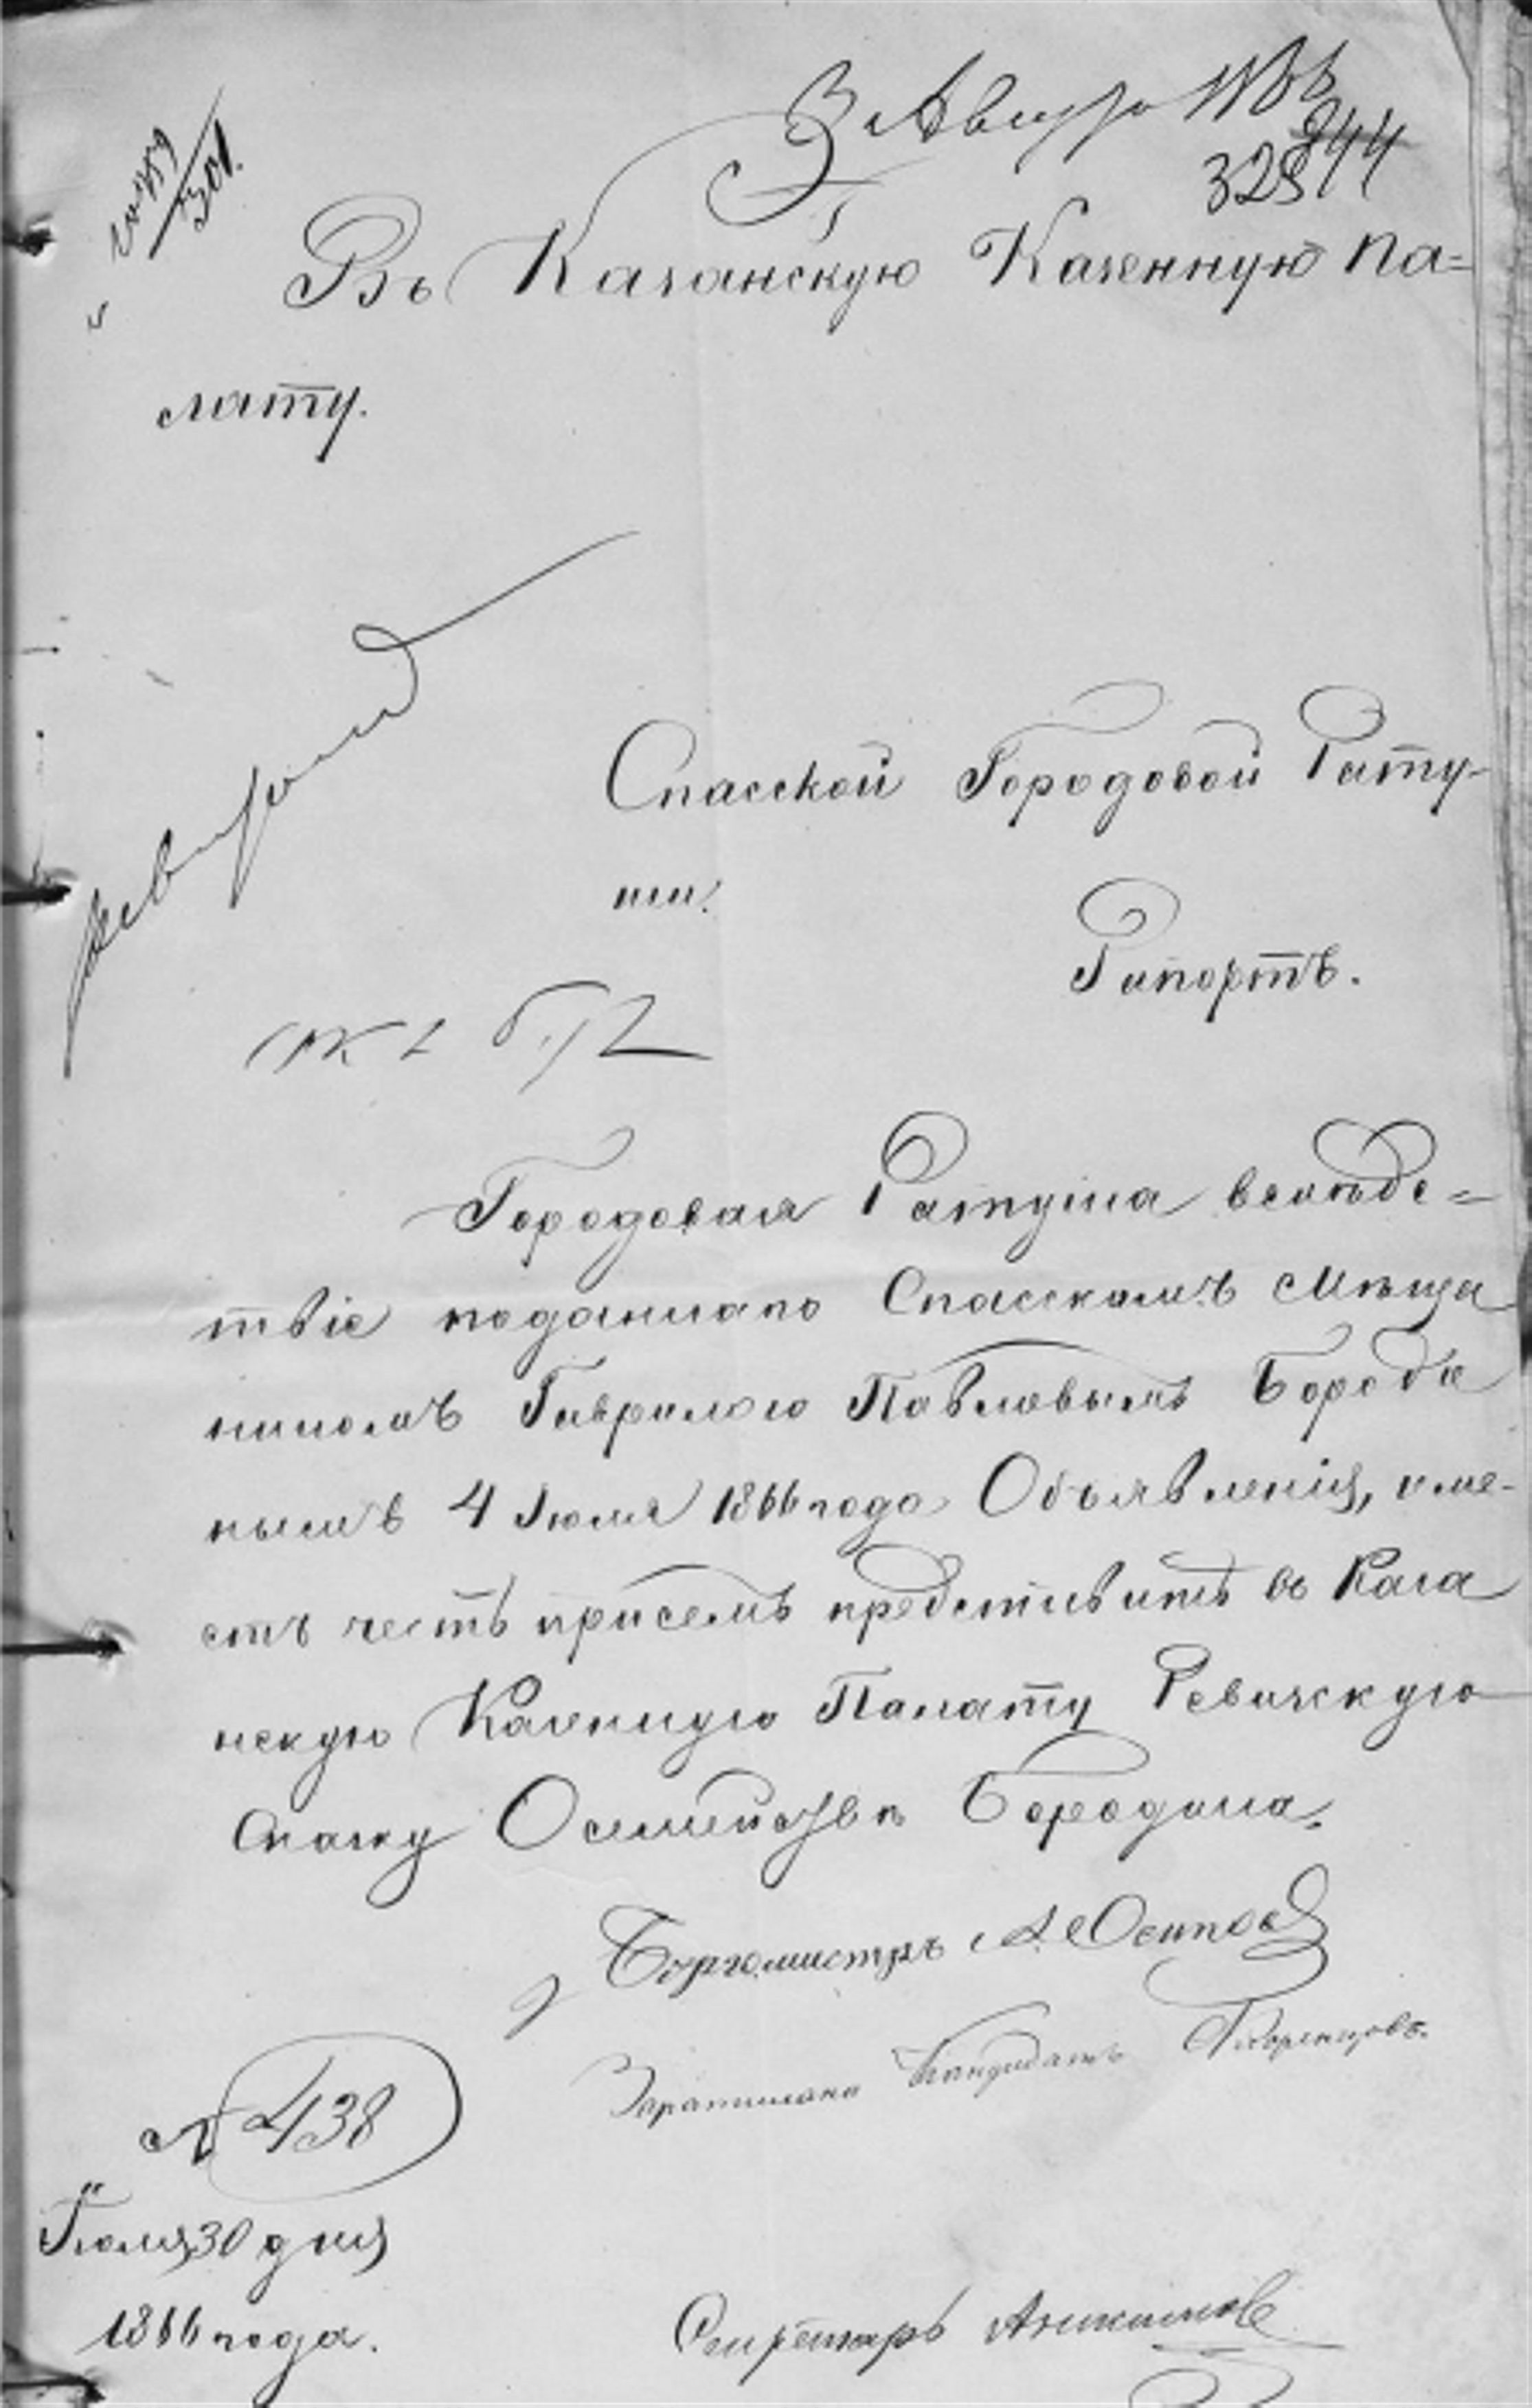 3 Августа 1866
944
328
Въ Казанскую Казенную Па=
лату.
Спасской Городовой Рату-
ши.
Рапортъ.
Городовая Ратуша вслѣдс=
твіе поданнаго Спасскимъ Мѣща
ниномъ Гаврилою Павловымъ Бороди
нымъ 4 Іюля 1866 года Объявленія, име-
етъ честь присемъ представить въ Каза
нскую Казенную Палату Ревизскую
Скаску О семействѣ Бородина.
Бургомистръ А. Осиповъ
Кандидатъ
№ 438
Іюля 30 дня
1866 года.
Секретарь Аникимовъ